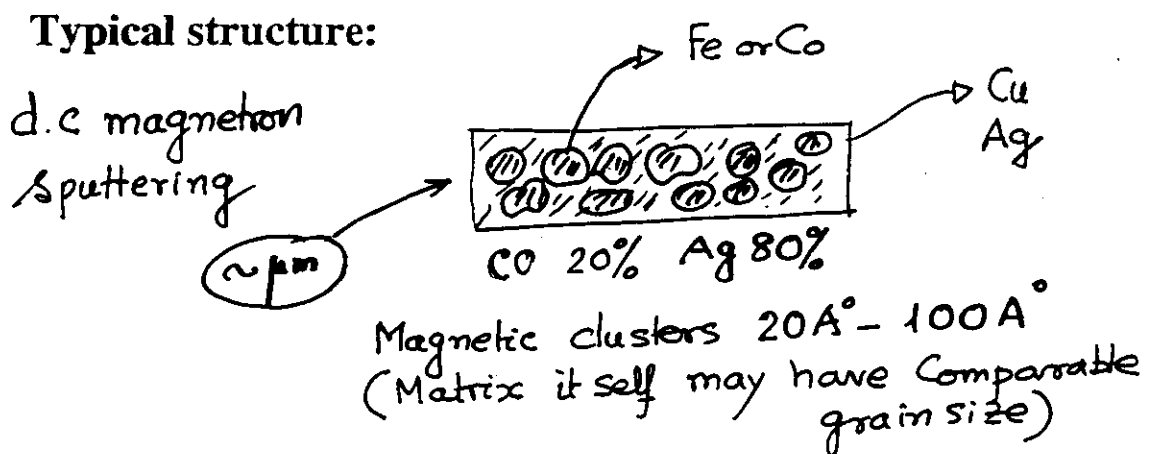 Typical structure:
Fe or Co
d.c magnetron
sputtering
Cu
Ag
~ μm
CO 20% Ag 80%
Magnetic clusters 20A° - 100A°
(Matrix it self may have Comparrable
grain size)